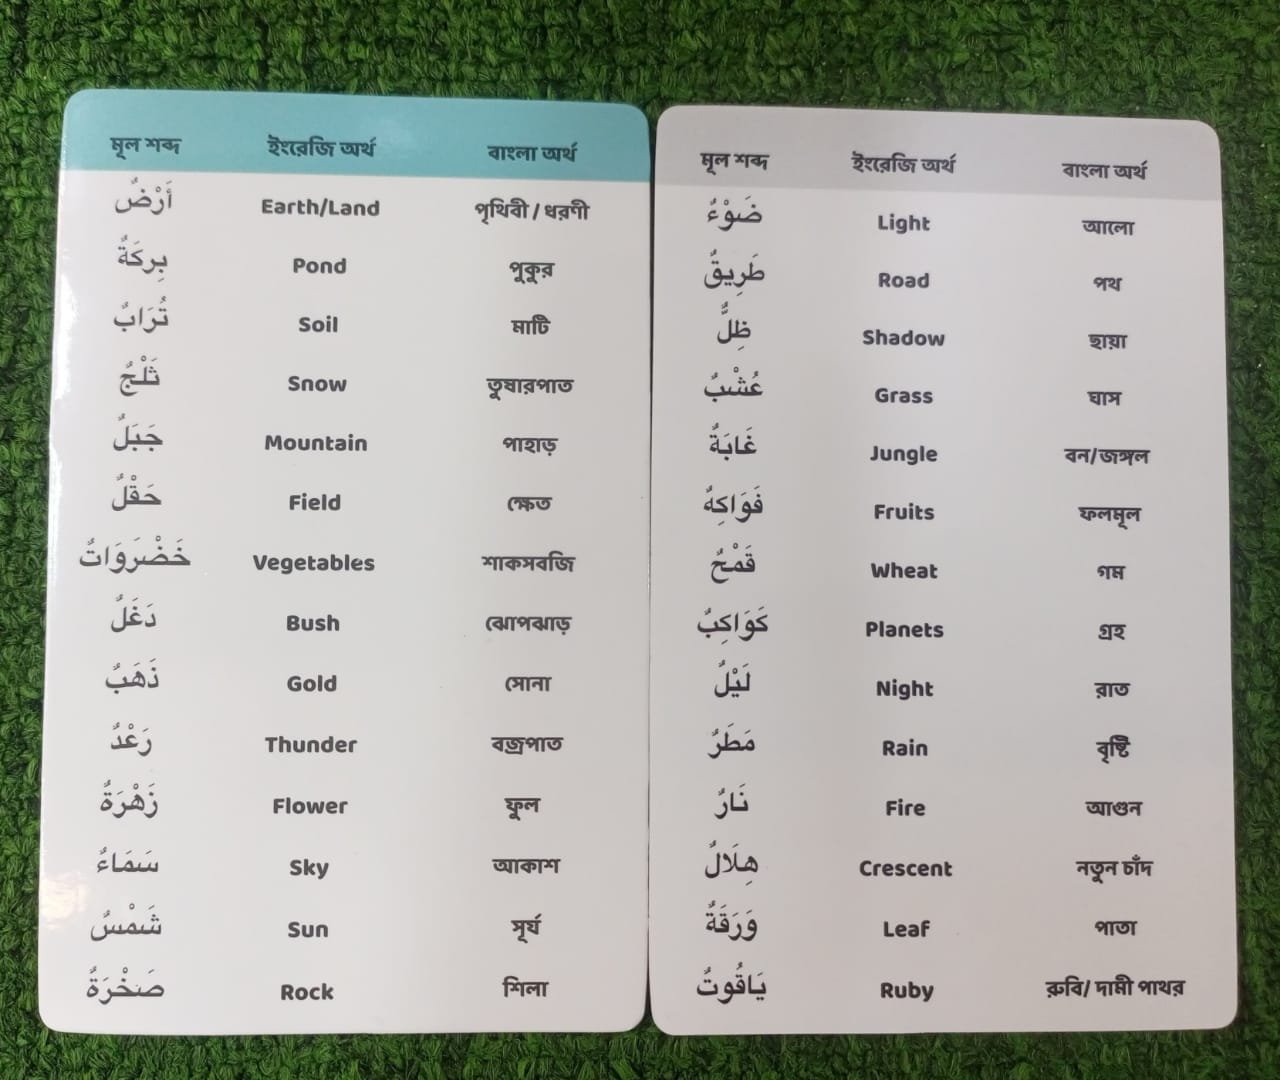 মূল শব্দ ইংরেজি অর্থ বাংলা অর্থ
أَرْضٌ Earth/Land পৃথিবী / ধরণী
بِركَةٌ Pond পুকুর
تُرَابٌ Soil মাটি
ثَلْجٌ Snow তুষারপাত
جَبَلٌ Mountain পাহাড়
حَقْلٌ Field ক্ষেত
خَضْرَوَاتٌ Vegetables শাকসবজি
دَغَلٌ Bush ঝোপঝাড়
ذَهَبٌ Gold সোনা
رَعْدٌ Thunder বজ্রপাত
زَهْرَةٌ Flower ফুল
سَمَاءٌ Sky আকাশ
شَمْسٌ Sun সূর্য
صَخْرَةٌ Rock শিলা
মূল শব্দ ইংরেজি অর্থ বাংলা অর্থ
ضَوْءٌ Light আলো
طَرِيقٌ Road পথ
ظِلٌّ Shadow ছায়া
عُشْبٌ Grass ঘাস
غَابَةٌ Jungle বন/জঙ্গল
فَوَاكِهٌ Fruits ফলমূল
قَمْحٌ Wheat গম
كَوَاكِبٌ Planets গ্রহ
لَيْلٌ Night রাত
مَطَرٌ Rain বৃষ্টি
نَارٌ Fire আগুন
هِلَالٌ Crescent নতুন চাঁদ
وَرَقَةٌ Leaf পাতা
يَاقُوتٌ Ruby রুবি/ দামী পাথর